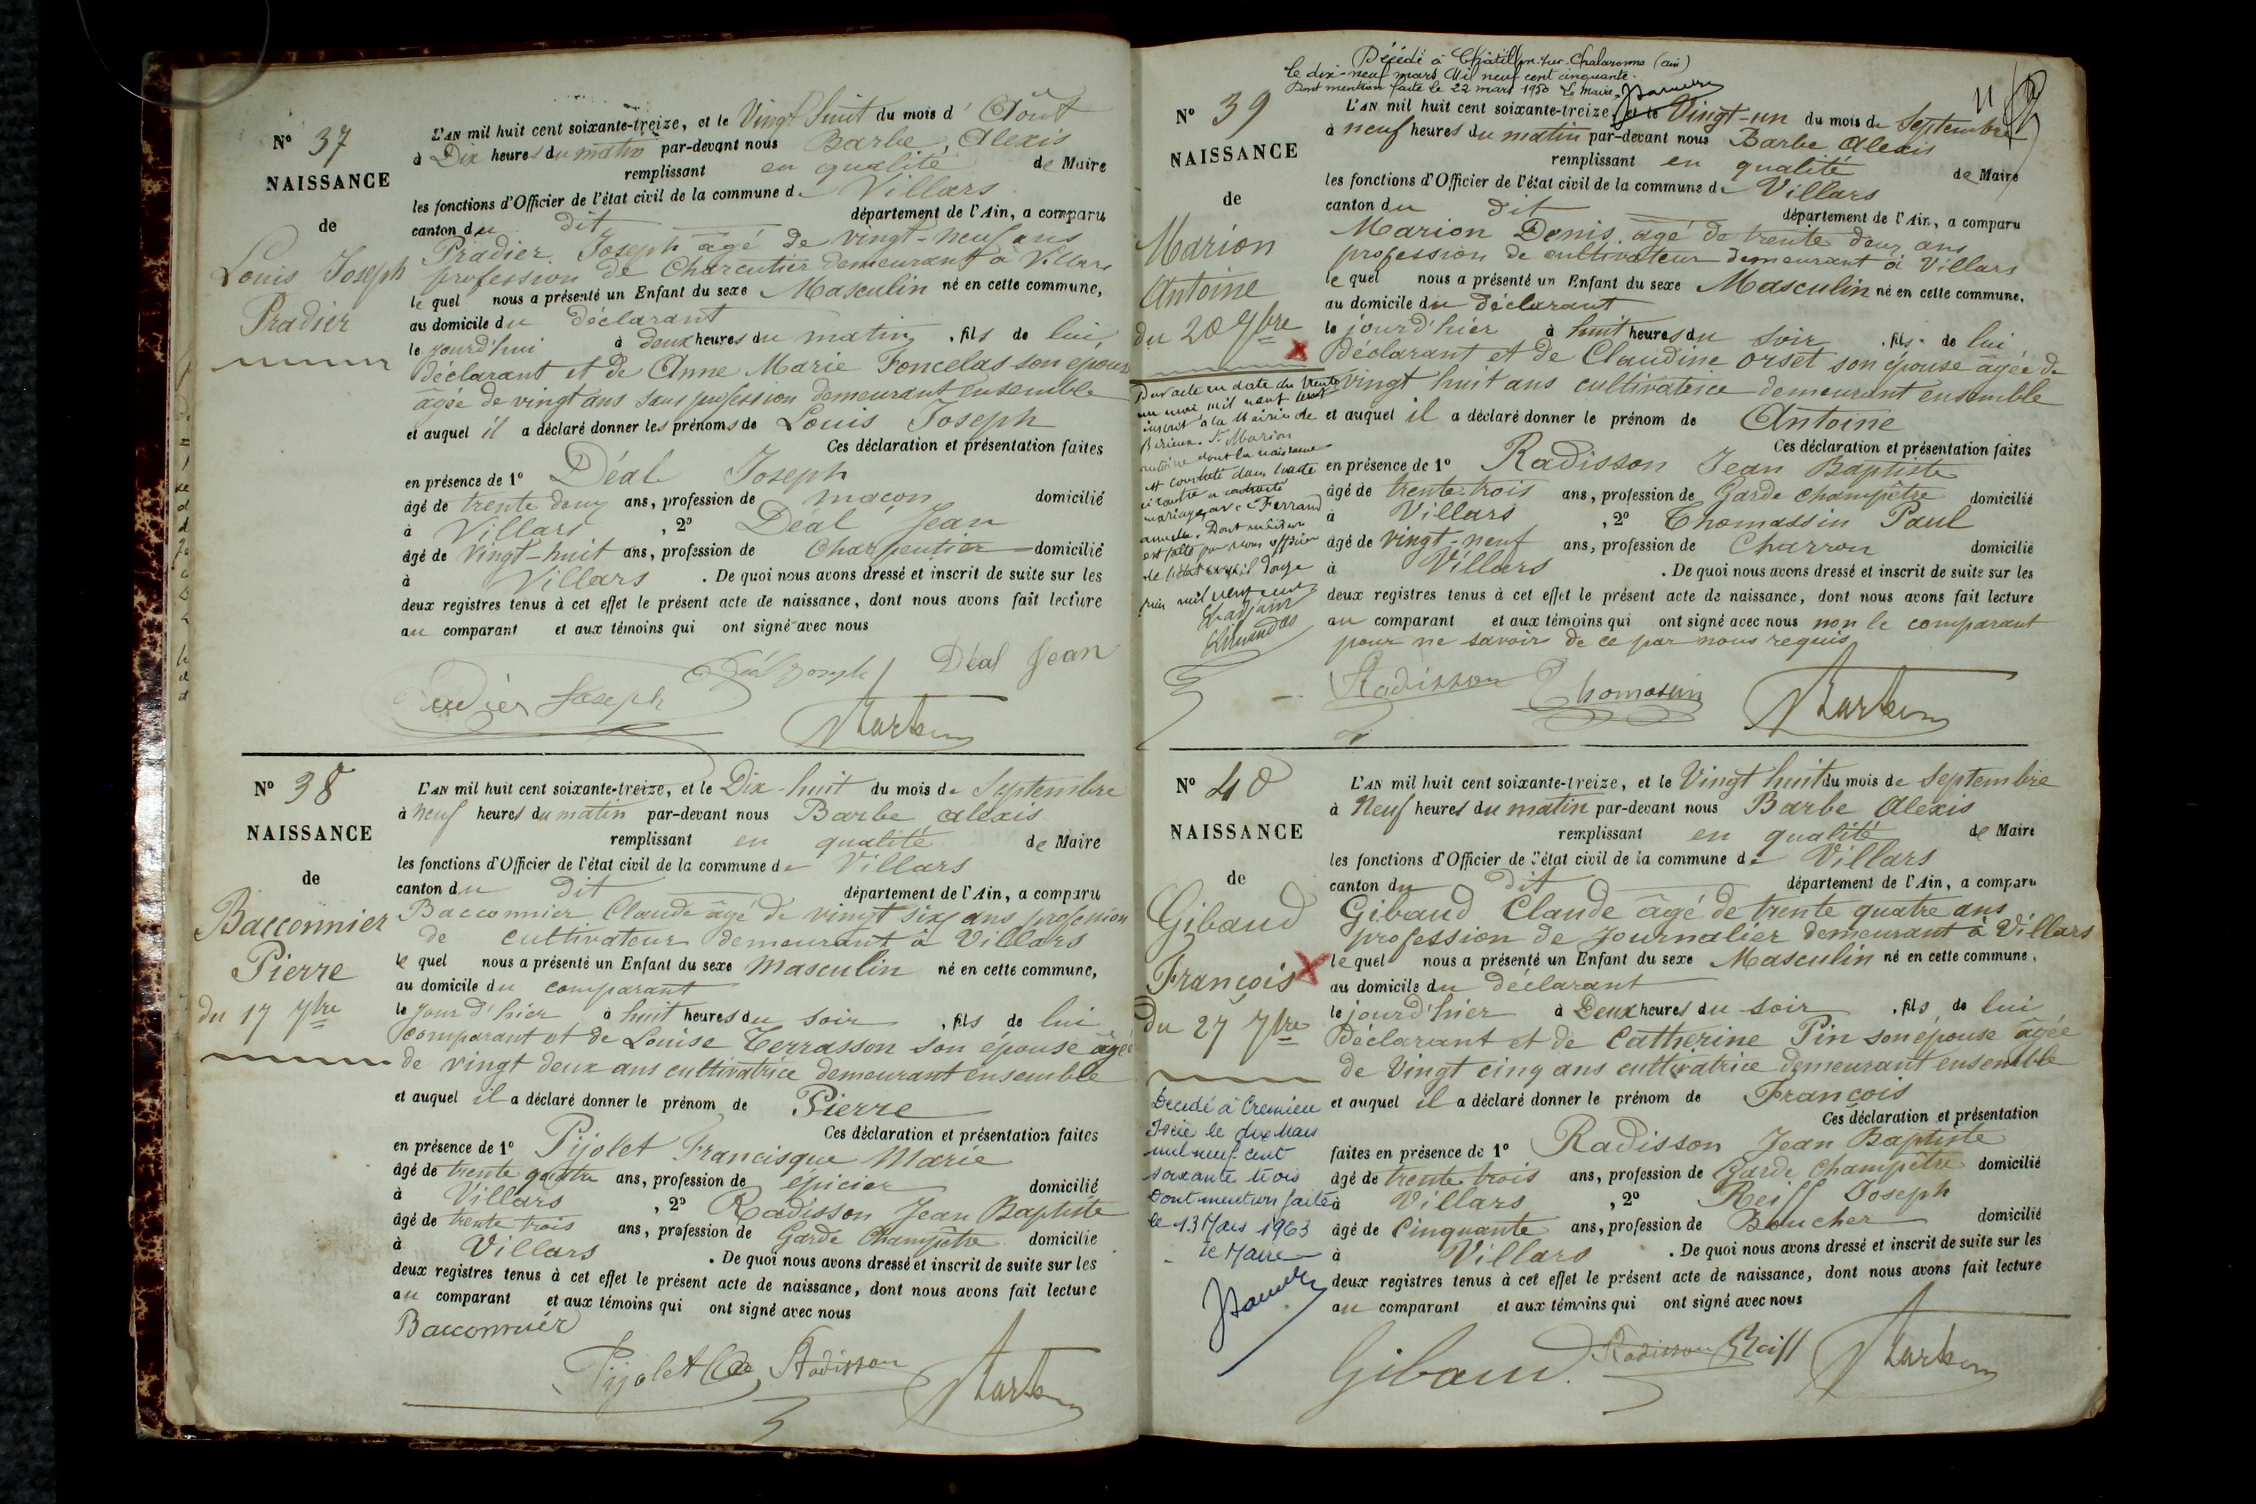 N° 37
NAISSANCE
de
Louis Joseph
Pradier
L'AN mil huit cent soixante-treize, et le Vingt huit du mois d'Août
à Dix heures du matin par-devant nous Barbe, Alexis
remplissant en qualité de Maire
les fonctions d'Officier de l'état civil de la commune de Villars
canton du dit département de l'Ain, a comparu
Pradier Joseph âgé de vingt-neuf ans
profession de Charcutier demeurant à Villars
le quel nous a présenté un Enfant du sexe Masculin né en cette commune,
au domicile du déclarant
le jourd'hui à deux heures du matin, fils de lui
déclarant et de Anne Marie Foncelas son épouse
âgée de vingt ans sans profession demeurant ensemble
et auquel il a déclaré donner les prénoms de Louis Joseph
Ces déclaration et présentation faites
en présence de 1° Déal Joseph
âgé de trente deux ans, profession de maçon domicilié
à Villars, 2° Déal Jean
âgé de vingt-huit ans, profession de Charpentier domicilié
à Villars. De quoi nous avons dressé et inscrit de suite sur les
deux registres tenus à cet effet le présent acte de naissance, dont nous avons fait lecture
au comparant et aux témoins qui ont signé avec nous
Déal Joseph Déal Jean
Pradier Joseph ABarbe
N° 38
NAISSANCE
de
Bacconnier
Pierre
du 17 7bre
L'AN mil huit cent soixante-treize, et le Dix-huit du mois de Septembre
à neuf heures du matin par-devant nous Barbe Alexis
remplissant en qualité de Maire
les fonctions d'Officier de l'état civil de la commune de Villars
canton du dit département de l'Ain, a comparu
Bacconnier Claude âgé de vingt six ans profession
de cultivateur demeurant à Villars
le quel nous a présenté un Enfant du sexe Masculin né en cette commune,
au domicile du comparant
le jour d'hier à huit heures du soir, fils de lui
comparant et de Louise Terrasson son épouse âgée
de vingt deux ans cultivatrice demeurant ensemble
et auquel il a déclaré donner le prénom de Pierre
Ces déclaration et présentation faites
en présence de 1° Pijolet Francisque Marie
âgé de trente quatre ans, profession de épicier domicilié
à Villars, 2° Radisson Jean Baptiste
âgé de trente trois ans, profession de Garde Champêtre domicilié
à Villars. De quoi nous avons dressé et inscrit de suite sur les
deux registres tenus à cet effet le présent acte de naissance, dont nous avons fait lecture
au comparant et aux témoins qui ont signé avec nous
Bacconnier
Pijolet Radisson ABarbe
Décédé à Châtillon-sur-Chalaronne (ain)
le dix-neuf mars Mil neuf cent cinquante.
Dont mention faite le 22 mars 1950 Le Maire
N° 39
NAISSANCE
de
Marion
Antoine
du 20 7bre
Par acte en date du trente
un mai mil neuf cent
inscrit à la Mairie de
Birieux Sr Marion
antoine dont la naissance
est constatée dans l'acte
ci contre a contracté
mariage avec Ferrand
Dont mention
est faite par nous officier
de l'état civil douze
juin mil neuf cent
L'AN mil huit cent soixante-treize, et le Vingt-un du mois de Septembre
à neuf heures du matin par-devant nous Barbe Alexis
remplissant en qualité de Maire
les fonctions d'Officier de l'état civil de la commune de Villars
canton du dit département de l'Ain, a comparu
Marion Denis âgé de trente deux ans
profession de cultivateur demeurant à Villars
le quel nous a présenté un Enfant du sexe Masculin né en cette commune,
au domicile du déclarant
le jourd'hier à huit heures du soir, fils de lui
déclarant et de Claudine Orset son épouse âgée de
vingt huit ans cultivatrice demeurant ensemble
et auquel il a déclaré donner le prénom de Antoine
Ces déclaration et présentation faites
en présence de 1° Radisson Jean Baptiste
âgé de trente-trois ans, profession de Garde champêtre domicilié
à Villars, 2° Thomassin Paul
âgé de vingt-neuf ans, profession de Charron domicilié
à Villars. De quoi nous avons dressé et inscrit de suite sur les
deux registres tenus à cet effet le présent acte de naissance, dont nous avons fait lecture
au comparant et aux témoins qui ont signé avec nous non le comparant
pour ne savoir de ce par nous requis
Radisson Thomassin ABarbe
N° 40
NAISSANCE
de
Gibaud
François
du 27 7bre
Décédé à Crémieu
Isère le dix Mars
mil neuf cent
soixante trois
Dont mention faite
le 13 Mars 1963
le Maire
L'AN mil huit cent soixante-treize, et le Vingt huit du mois de Septembre
à Neuf heures du matin par-devant nous Barbe Alexis
remplissant en qualité de Maire
les fonctions d'Officier de l'état civil de la commune de Villars
canton du dit département de l'Ain, a comparu
Gibaud Claude âgé de trente quatre ans
profession de Journalier demeurant à Villars
le quel nous a présenté un Enfant du sexe Masculin né en cette commune,
au domicile du déclarant
le jourd'hier à Deux heures du soir, fils de lui
déclarant et de Catherine Pin son épouse âgée
de Vingt cinq ans cultivatrice demeurant ensemble
et auquel il a déclaré donner le prénom de François
Ces déclaration et présentation
faites en présence de 1° Radisson Jean Baptiste
âgé de trente trois ans, profession de Garde Champêtre domicilié
à Villars, 2° Reiff Joseph
âgé de Cinquante ans, profession de Boucher domicilié
à Villars. De quoi nous avons dressé et inscrit de suite sur les
deux registres tenus à cet effet le présent acte de naissance, dont nous avons fait lecture
au comparant et aux témoins qui ont signé avec nous
Gibaud Radisson Reiff ABarbe